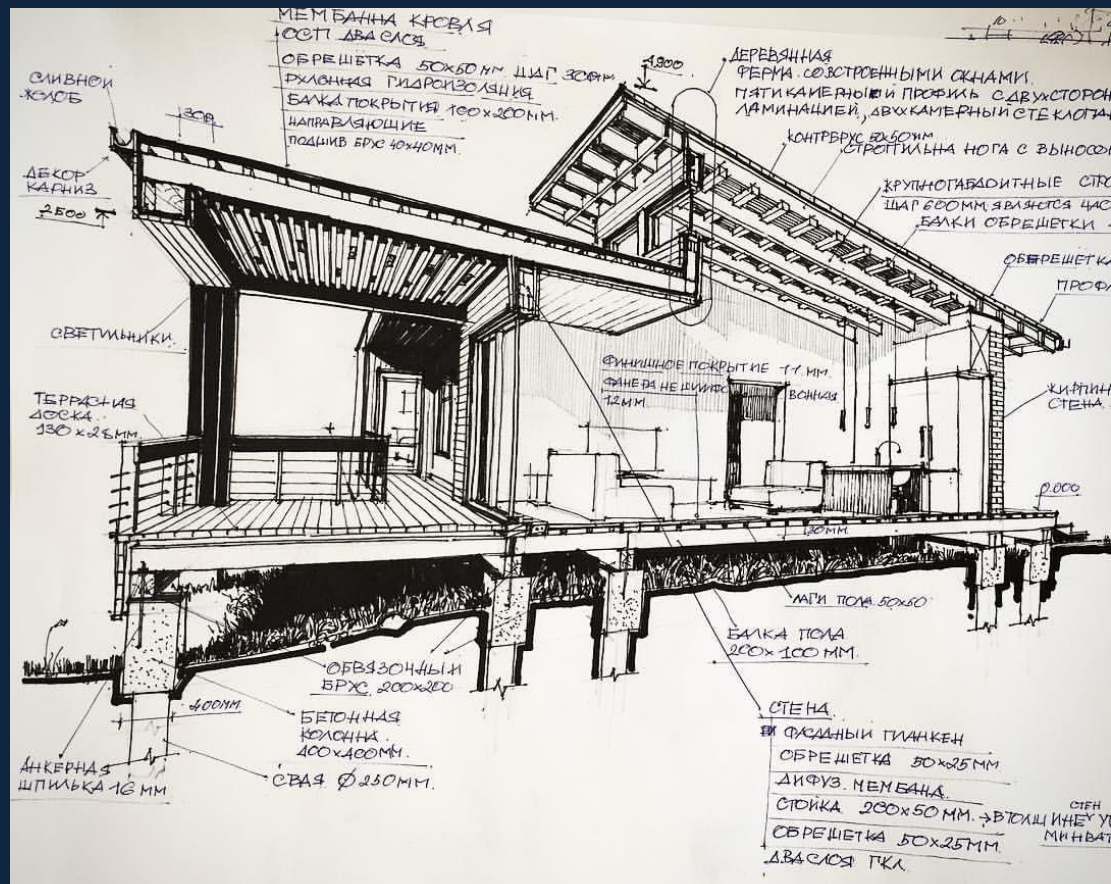 МЕМБАННА КРОВЛЯ
ОСП ДВА СЛОЯ
ОБРЕШЕТКА 50х50мм ШАГ 300мм
РУЛОННАЯ ГИДРОИЗОЛЯЦИЯ
БАЛКА ПОКРЫТИЯ 100х200мм.
НАПРАВЛЯЮЩИЕ
ПОДШИВ БРУС 40х40мм.
СЛИВНОЙ
ЖОЛОБ
300
ДЕКОР
КАРНИЗ
2500
СВЕТИЛЬНИКИ.
ТЕРРАСНАЯ
ДОСКА.
130х28мм.
4.900
ДЕРЕВЯННАЯ
ФЕРМА. СО ВСТРОЕННЫМИ ОКНАМИ.
ПЯТИКАМЕРНЫЙ ПРОФИЛЬ С ДВУХ СТОРОН
ЛАМИНАЦИЕЙ, ДВУХКАМЕРНЫЙ СТЕКЛОПА
КОНТРБРУС 50х50мм
СТРОПИЛЬНА НОГА С ВЫНОСОМ
КРУПНОГАБАОИТНЫЕ СТРО
ШАГ 600мм ЯВЛЯЮТСЯ ЧАС
БАЛКИ ОБРЕШЕТКИ
ОБРЕШЕТКА
ПРОФ
ФИНИШНОЕ ПОКРЫТИЕ 11 мм.
ФАНЕРА НЕ ШЛИФОВОННАЯ
12мм.
КИРПИЧН
СТЕНА.
0.000
20мм
ЛАГИ ПОЛА 50х50
БАЛКА ПОЛА
200х100мм.
ОБВЯЗОЧНЫЙ
БРУС 200х200
400мм
БЕТОННАЯ
КОЛОННА.
400х400мм.
СВАЯ Ø250мм.
АНКЕРНАЯ
ШПИЛЬКА 16мм
СТЕНА
ФАСАДНЫЙ ПЛАНКЕН
ОБРЕШЕТКА 50х25мм
ДИФУЗ. МЕМБАНА.
СТОЙКА 200х50мм. → В ТОЛЩИНЕ СТЕН УТ
МИНВАТ
ОБРЕШЕТКА 50х25мм
ДВА СЛОЯ ГКЛ.